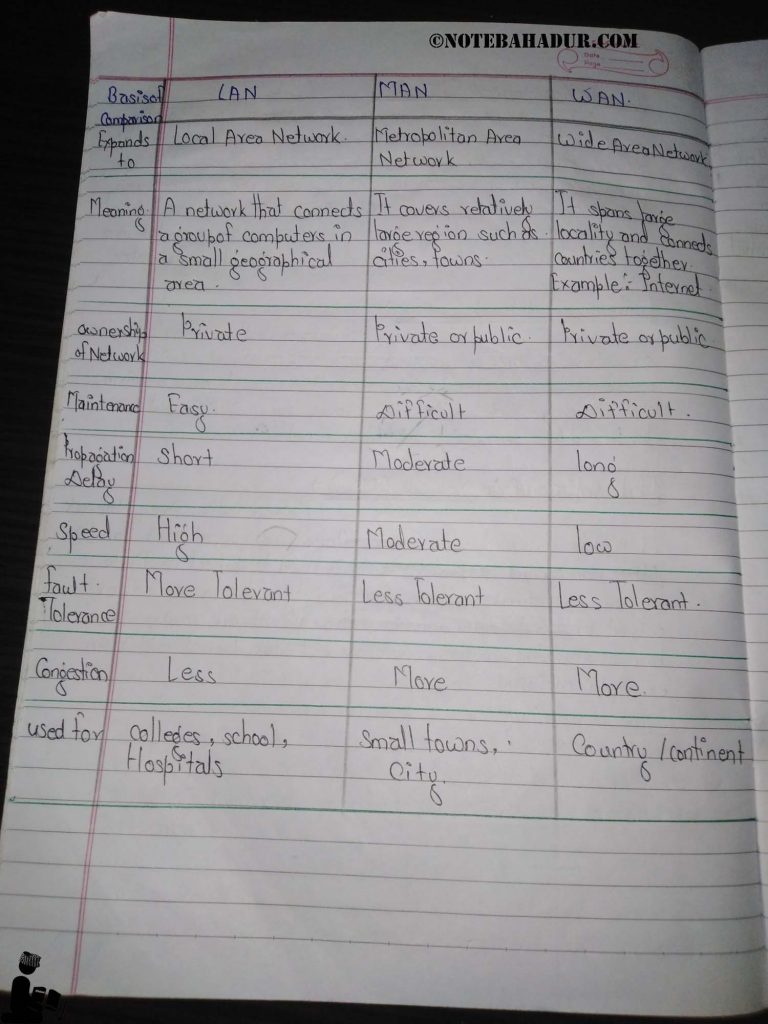 ©NOTEBAHADUR.COM
Date
Page
Basis of Comparison LAN MAN WAN.
Expands to Local Area Network. Metropolitan Area Network Wide Area Network
Meaning. A network that connects It covers relatively It spans large
a group of computers in large region such as locality and connects
a small geographical cities, towns. countries together.
area. Example: Internet
ownership of Network Private Private or public. Private or public.
Maintenance Easy. Difficult Difficult.
Propagation Delay short Moderate long
Speed High Moderate low
fault. Tolerance More Tolerant Less Tolerant Less Tolerant.
Congestion Less More More.
used for colleges, school, small towns, Country / continent
Hospitals City.